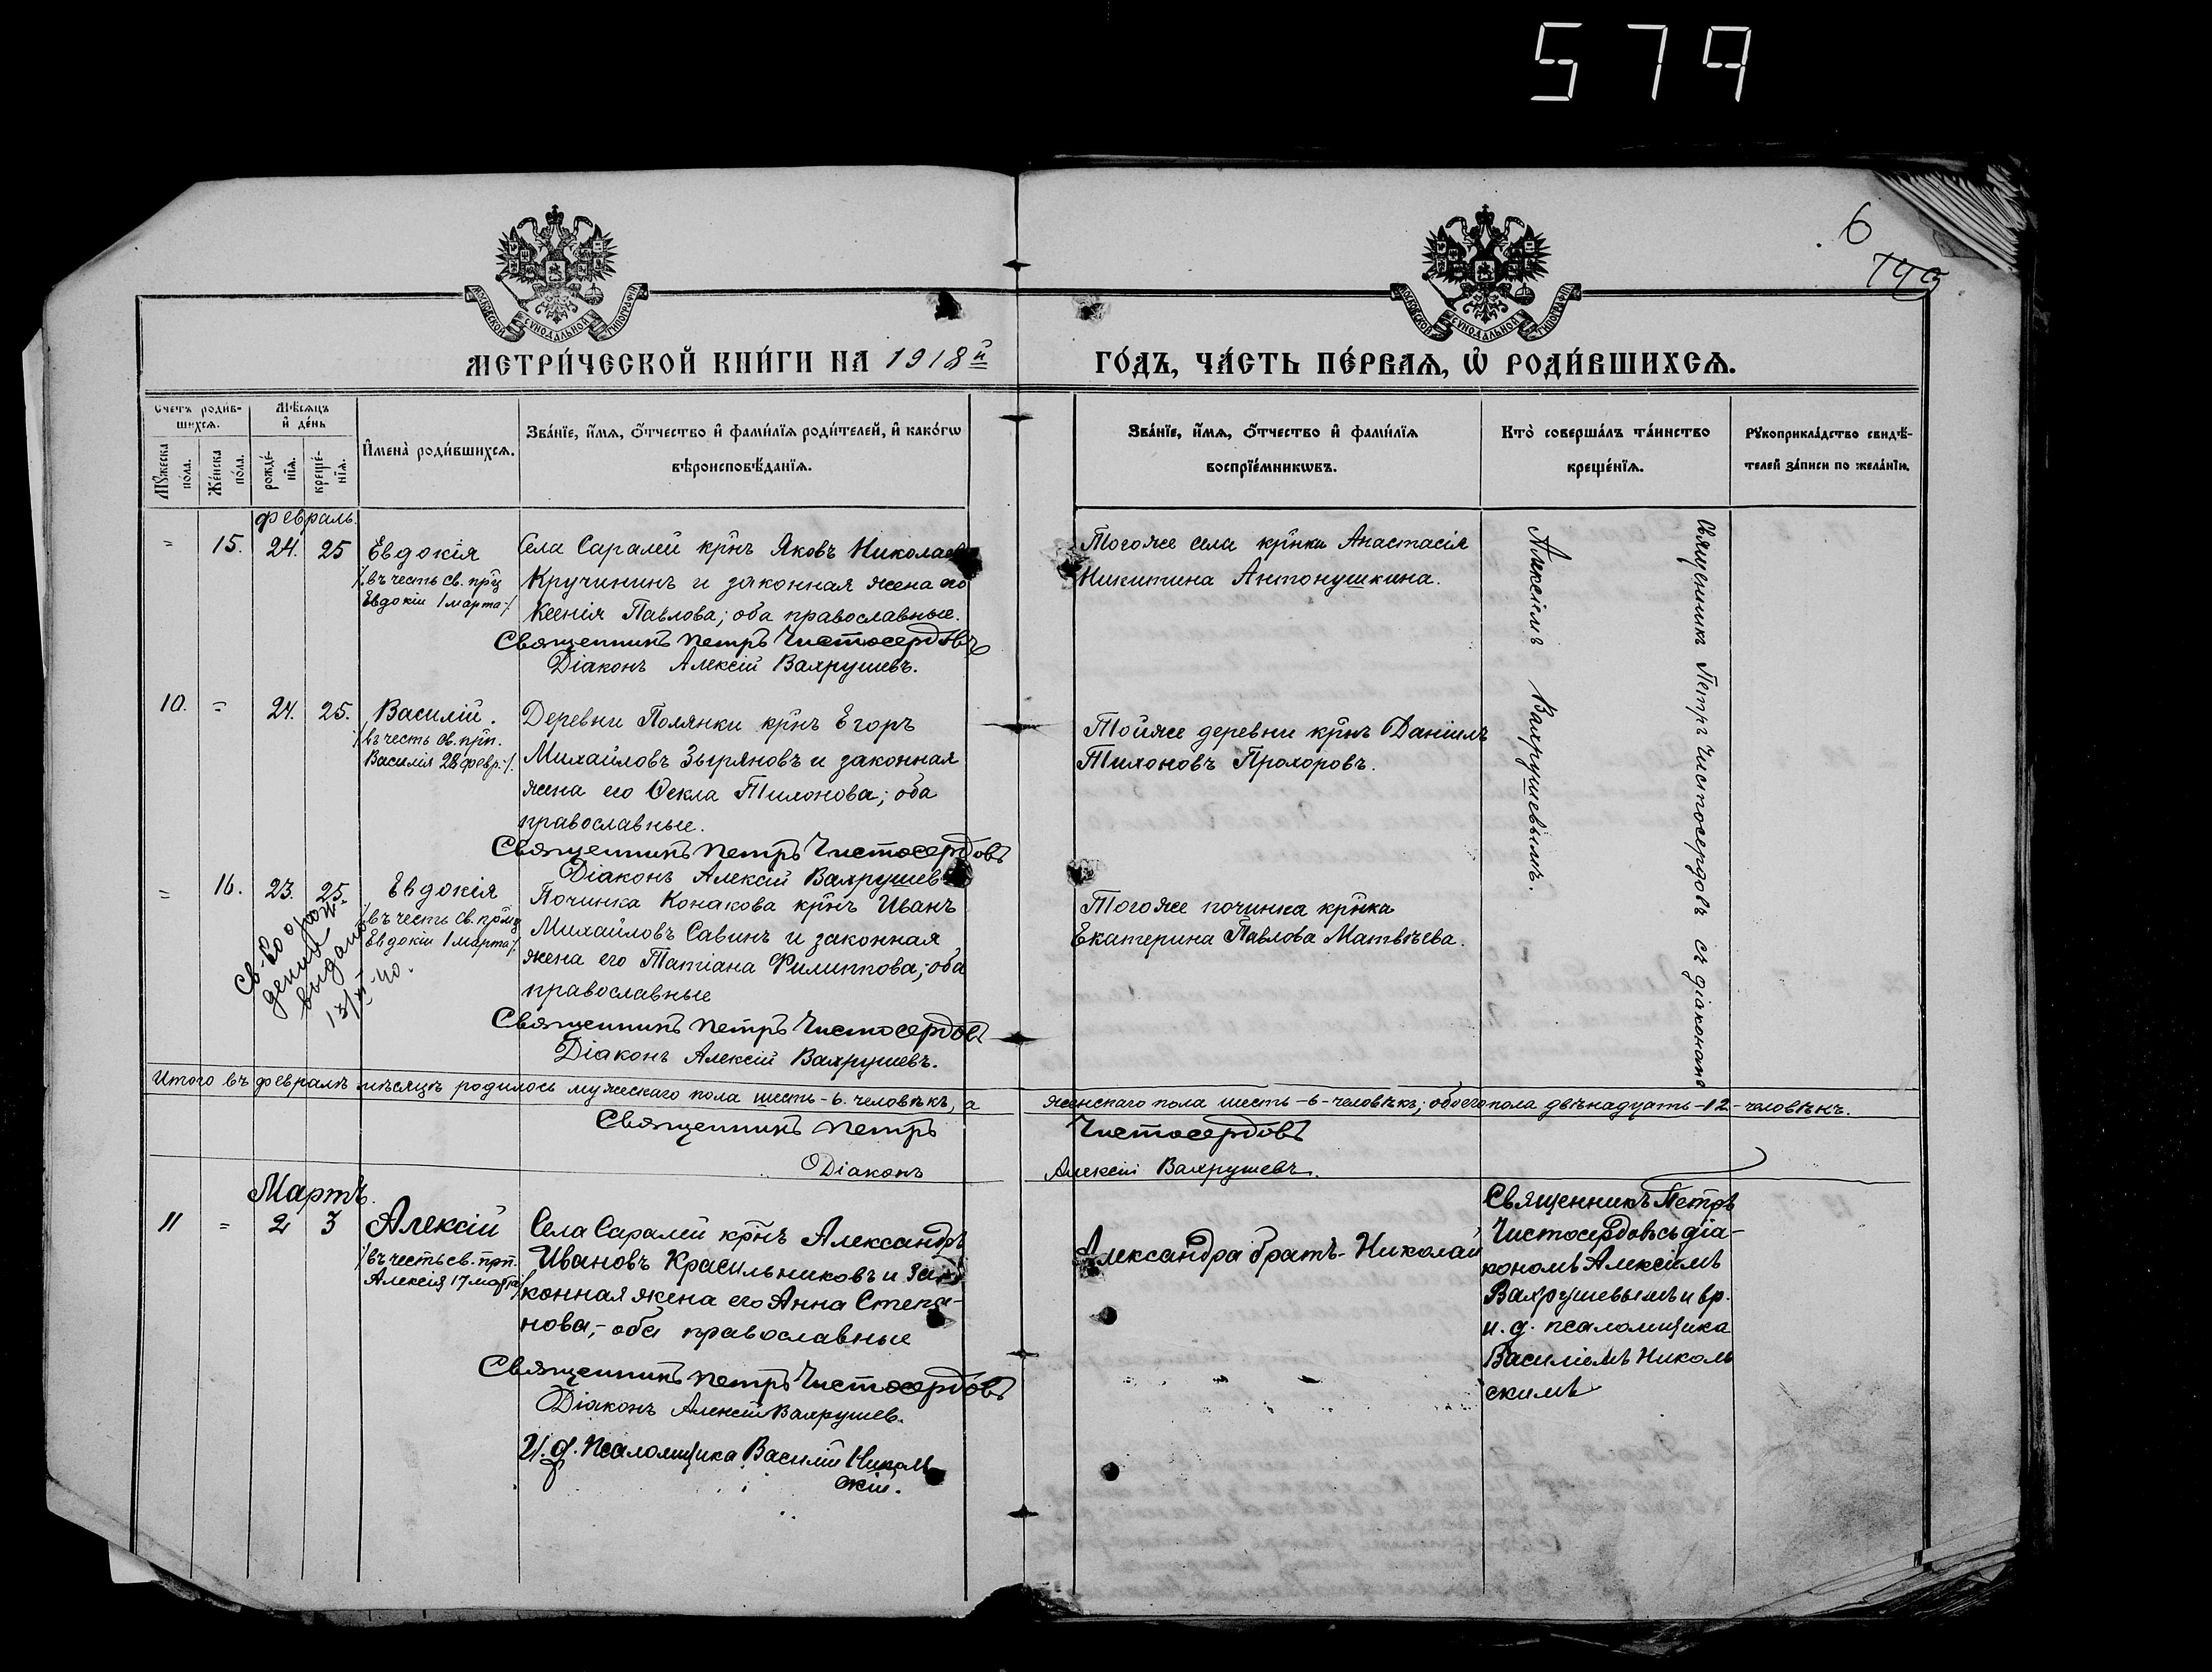 579
6
МОСКОВСКОЙ СУНОДАЛЬНОЙ ТИПОГРАФІИ
МОСКОВСКОЙ СУНОДАЛЬНОЙ ТИПОГРАФІИ
МЕТРИ́ЧЕСКОЙ КНИ́ГИ НА 1918й
ГО́ДЪ, ЧА́СТЬ ПЕ́РВАѦ, Ѡ РОДИ́ВШИХСѦ.
Счетъ роди́вшихсѧ.
Мꙋ́жеска по́ла.
Же́нска по́ла.
Мѣ́сѧцъ и҆ де́нь
рожде́нїѧ.
креще́нїѧ.
И҆мена̀ роди́вшихсѧ.
Зва́нїе, и҆́мѧ, ѻ҆́тчество и҆ фами́лїѧ роди́телей, и҆ како́гѡ
вѣроисповѣ́данїѧ.
Зва́нїе, и҆́мѧ, ѻ҆́тчество и҆ фами́лїѧ
воспрїе́мникѡвъ.
Кто̀ соверша́лъ та́инство
креще́нїѧ.
Рꙋкоприкла́дство свидѣ́-
телей за́писи по жела́нїю.
Февраль.
" 15. 24. 25
Евдокія
/въ честь св. прмц
Евдокіи 1 марта/
Села Саралей крн̃ъ Яковъ Николаевъ
Кручининъ и законная жена его
Ксенія Павлова; оба православные.
Священникъ Петръ Чистосердовъ
Діаконъ Алексій Вахрушевъ.
Тогоже села крн̃ка Анастасія
Никитина Антонушкина.
Священникъ Петръ Чистосердовъ съ діакономъ
Алексіемъ Вахрушевымъ.
10. = 24. 25.
Василій.
/въ честь св. прп.
Василія 28 февр./.
Деревни Полянки крн̃ъ Егоръ
Михайловъ Зыряновъ и законная
жена его Ѳекла Тихонова; оба
православные.
Священникъ Петръ Чистосердовъ
Діаконъ Алексій Вахрушевъ
Тойже деревни крн̃ъ Даніилъ
Тихоновъ Прохоровъ.
= 16. 23. 25.
Евдокія
/въ честь св. прмц
Евдокіи 1 марта/.
Св-во о рож-
дении
выдано
13/VI-40.
Починка Конакова крн̃ъ Иванъ
Михайловъ Савинъ и законная
жена его Татіана Филиппова; оба
православные
Священникъ Петръ Чистосердовъ
Діаконъ Алексій Вахрушевъ.
Тогоже починка крн̃ка
Екатерина Павлова Матвѣева.
Итого въ февралѣ мѣсяцѣ родилось мужескаго пола шесть -6- человѣкъ, а
женскаго пола шесть -6- человѣкъ; обоего пола двѣнадцать -12- человѣкъ.
Священникъ Петръ Чистосердовъ
Діаконъ Алексій Вахрушевъ.
Мартъ.
11 = 2 3
Алексій
/въ честь св. прп.
Алексія 17 марта/
Села Саралей крн̃ъ Александръ
Ивановъ Красильниковъ и за-
конная жена его Анна Степа-
нова,- оба православные
Священникъ Петръ Чистосердовъ
Діаконъ Алексій Вахрушев.
И. д. псаломщика Василій Николь
скій.
Александра братъ- Николай
Священникъ Петръ
Чистосердовъ съ діа-
кономъ Алексіемъ
Вахрушевымъ и вр.
и. д. псаломщика
Василіемъ Николь
скимъ